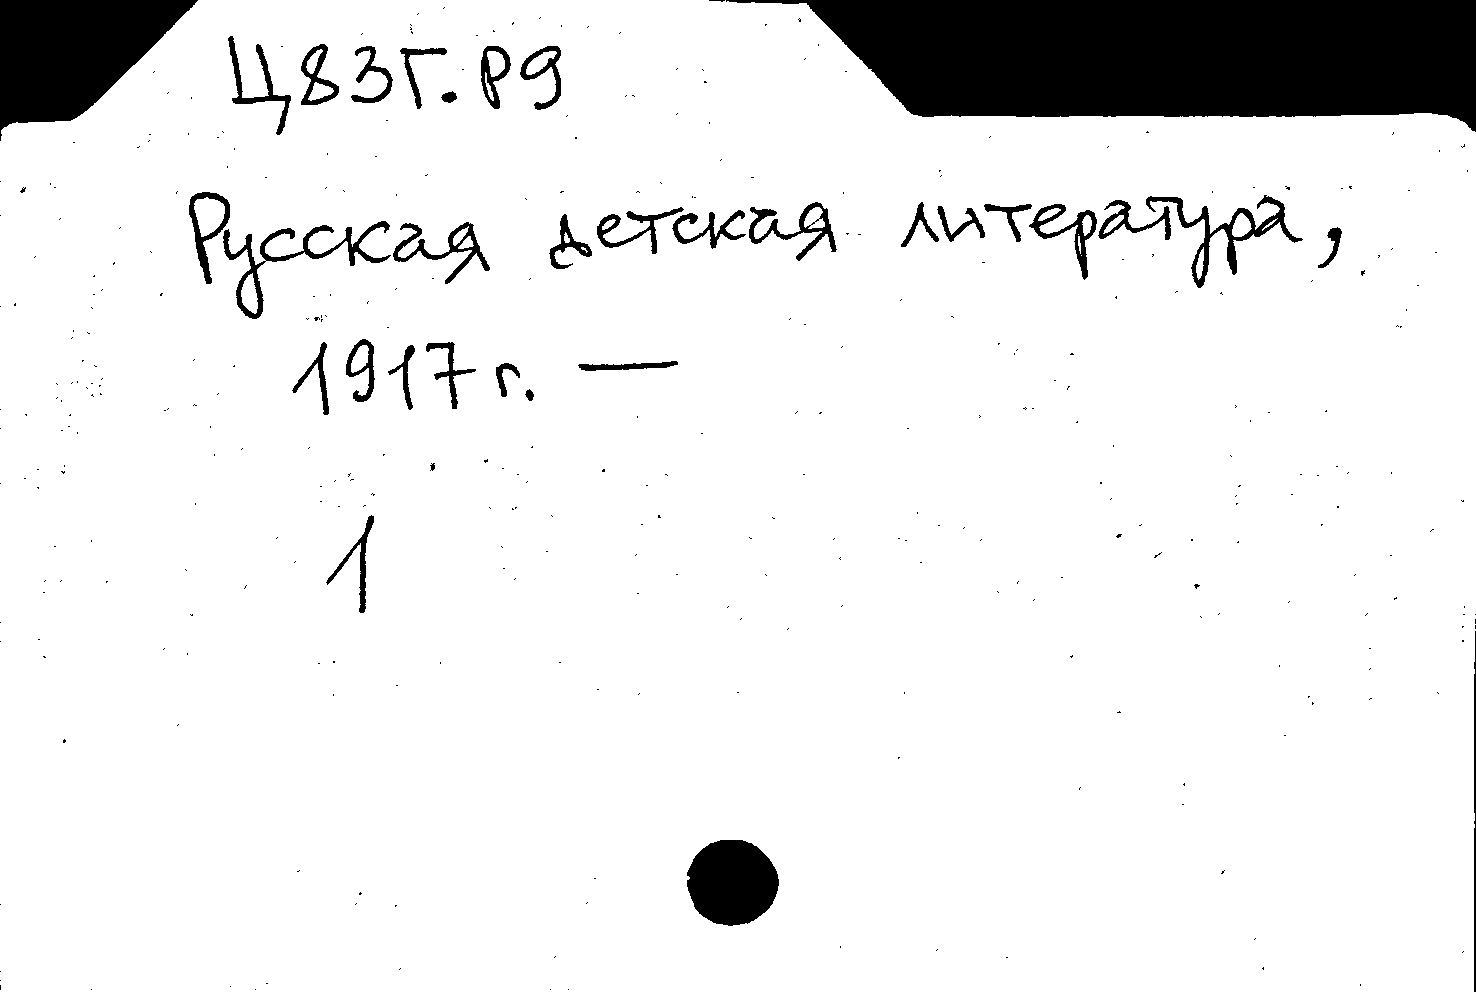 Ц83Г.Р9
Русская детская литература,
1917 г. —
1